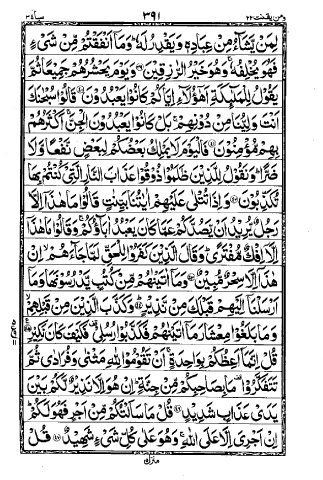 ومن يقنت ٢٢ ٣٩١ سبا ٣٤
لِمَنْ يَّشَآءُ مِنْ عِبَادِهٖ وَيَقْدِرُ لَهٗ ؕ وَمَاۤ اَنْفَقْتُمْ مِّنْ شَىْءٍ
فَهُوَ يُخْلِفُهٗ ۚ وَهُوَ خَيْرُ الرّٰزِقِيْنَ ۝ وَيَوْمَ يَحْشُرُهُمْ جَمِيْعًا ثُمَّ
يَقُوْلُ لِلْمَلٰٓئِكَةِ اَهٰٓؤُلَآءِ اِيَّاكُمْ كَانُوْا يَعْبُدُوْنَ ۝ قَالُوْا سُبْحٰنَكَ
اَنْتَ وَلِيُّنَا مِنْ دُوْنِهِمْ ۚ بَلْ كَانُوْا يَعْبُدُوْنَ الْجِنَّ ۚ اَكْثَرُهُمْ
بِهِمْ مُّؤْمِنُوْنَ ۝ فَالْيَوْمَ لَا يَمْلِكُ بَعْضُكُمْ لِبَعْضٍ نَّفْعًا وَّلَا
ضَرًّا ؕ وَنَقُوْلُ لِلَّذِيْنَ ظَلَمُوْا ذُوْقُوْا عَذَابَ النَّارِ الَّتِيْ كُنْتُمْ بِهَا
تُكَذِّبُوْنَ ۝ وَاِذَا تُتْلٰى عَلَيْهِمْ اٰيٰتُنَا بَيِّنٰتٍ قَالُوْا مَا هٰذَاۤ اِلَّا
رَجُلٌ يُّرِيْدُ اَنْ يَّصُدَّكُمْ عَمَّا كَانَ يَعْبُدُ اٰبَآؤُكُمْ ۚ وَقَالُوْا مَا هٰذَاۤ
اِلَّاۤ اِفْكٌ مُّفْتَرًى ؕ وَقَالَ الَّذِيْنَ كَفَرُوْا لِلْحَقِّ لَمَّا جَآءَهُمْ ۙ اِنْ
هٰذَاۤ اِلَّا سِحْرٌ مُّبِيْنٌ ۝ وَمَاۤ اٰتَيْنٰهُمْ مِّنْ كُتُبٍ يَّدْرُسُوْنَهَا وَمَاۤ
اَرْسَلْنَاۤ اِلَيْهِمْ قَبْلَكَ مِنْ نَّذِيْرٍ ۝ وَكَذَّبَ الَّذِيْنَ مِنْ قَبْلِهِمْ ۙ
وَمَا بَلَغُوْا مِعْشَارَ مَاۤ اٰتَيْنٰهُمْ فَكَذَّبُوْا رُسُلِيْ ۣ فَكَيْفَ كَانَ نَكِيْرِ ۝
قُلْ اِنَّمَاۤ اَعِظُكُمْ بِوَاحِدَةٍ ۚ اَنْ تَقُوْمُوْا لِلّٰهِ مَثْنٰى وَفُرَادٰى ثُمَّ
تَتَفَكَّرُوْا ۣ مَا بِصَاحِبِكُمْ مِّنْ جِنَّةٍ ؕ اِنْ هُوَ اِلَّا نَذِيْرٌ لَّكُمْ بَيْنَ
يَدَيْ عَذَابٍ شَدِيْدٍ ۝ قُلْ مَا سَاَلْتُكُمْ مِّنْ اَجْرٍ فَهُوَ لَكُمْ ؕ
اِنْ اَجْرِيَ اِلَّا عَلَى اللّٰهِ ۚ وَهُوَ عَلٰى كُلِّ شَىْءٍ شَهِيْدٌ ۝ قُلْ